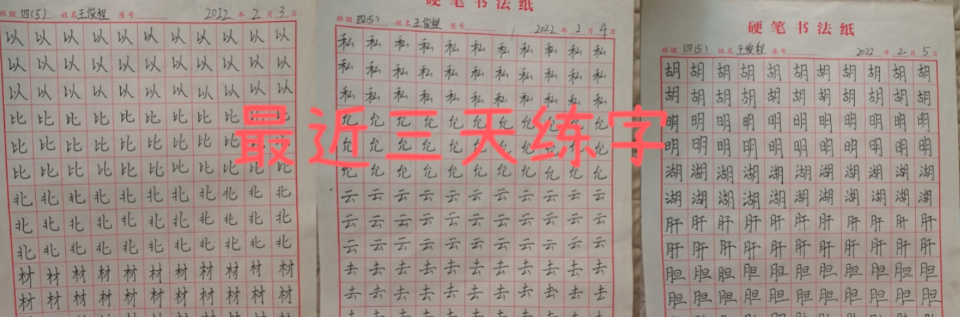 班级 四(5) 姓名 王俊程 座号 2022年2月3日
以以以以以以以以以以以
以以以以以以以以以以以
以以以以以以以以以以以
比比比比比比比比比比比
比比比比比比比比比比比
比比比比比比比比比比比
北北北北北北北北北北北
北北北北北北北北北北北
北北北北北北北北北北北
材材材材材材材材材材材
材材材材材材材材材材材
硬笔书法纸
班级 四(5) 姓名 王俊程 座号 2022年2月4日
私私私私私私私私私私私
私私私私私私私私私私私
私私私私私私私私私私私
允允允允允允允允允允允
允允允允允允允允允允允
允允允允允允允允允允允
云云云云云云云云云云云
云云云云云云云云云云云
云云云云云云云云云云云
去去去去去去去去去去去
去去去去去去去去去去去
硬笔书法纸
班级 四(5) 姓名 王俊程 座号 2022年2月5日
胡胡胡胡胡胡胡胡胡胡胡
胡胡胡胡胡胡胡胡胡胡胡
明明明明明明明明明明明
明明明明明明明明明明明
湖湖湖湖湖湖湖湖湖湖湖
湖湖湖湖湖湖湖湖湖湖湖
肝肝肝肝肝肝肝肝肝肝肝
肝肝肝肝肝肝肝肝肝肝肝
胆胆胆胆胆胆胆胆胆胆胆
胆胆胆胆胆胆胆胆胆胆胆
最近三天练字